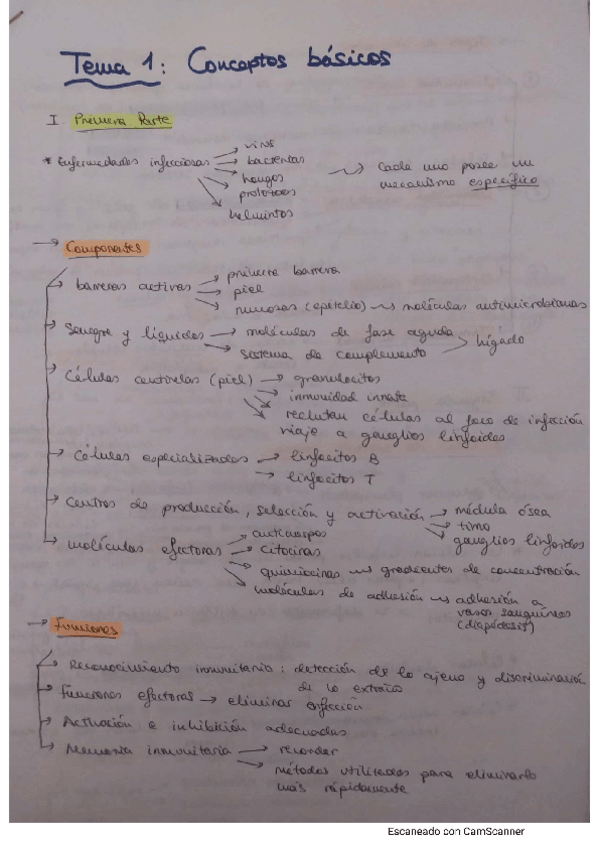 Tema 1: Conceptos básicos
I Primera Parte
* Enfermedades infecciosas → virus
→ bacterias
→ hongos
→ protozoos
→ helmintos
→ Cada uno posee un
mecanismo específico
→ Componentes
→ barreras activas → primera barrera
→ piel
→ mucosas (epitelio) → moléculas antimicrobianas
→ Sangre y líquidos → moléculas de fase aguda
→ sistema de complemento > hígado
→ Células centinelas (piel) → granulocitos
→ inmunidad innata
→ reclutan células al foco de infección
viaje a ganglios linfoides
→ Células especializadas → linfocitos B
→ linfocitos T
→ Centros de producción, selección y activación → médula ósea
→ timo
→ ganglios linfoides
→ moléculas efectoras → anticuerpos
→ citocinas
→ quimiocinas → gradientes de concentración
→ moléculas de adhesión → adhesión a
vasos sanguíneos
(diapédesis)
→ Funciones
→ Reconocimiento inmunitario: detección de lo ajeno y discriminación
de lo extraño
→ Funciones efectoras → eliminar infección
→ Activación e inhibición adecuadas
→ Memoria inmunitaria → recordar
→ métodos utilizados para eliminarlo
más rápidamente
Escaneado con CamScanner